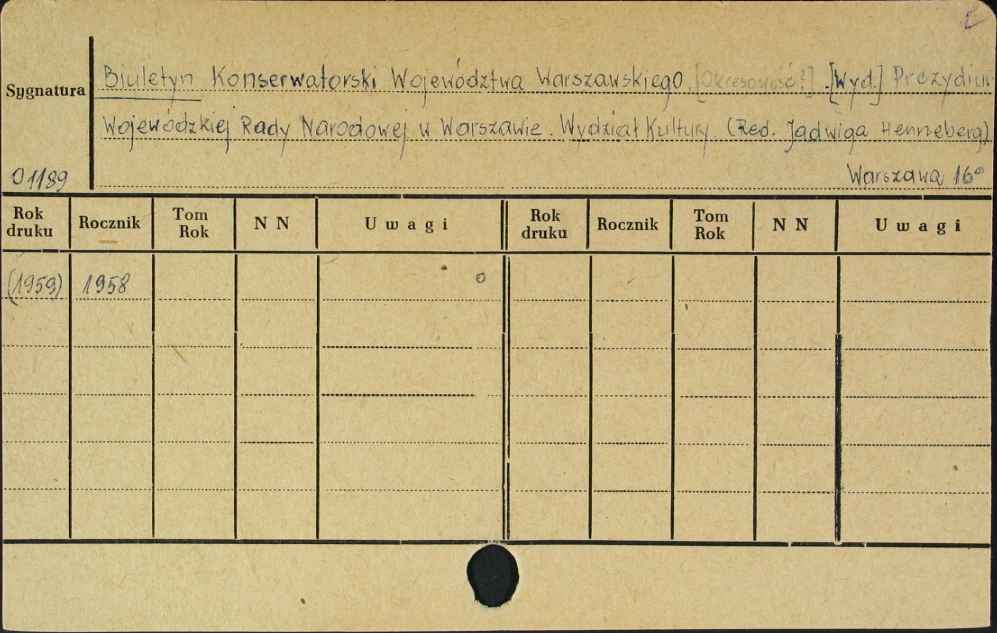 Sygnatura
Biuletyn Konserwatorski Województwa Warszawskiego [Okresowość?]. [Wyd.] Prezydium
Wojewódzkiej Rady Narodowej w Warszawie. Wydział Kultury (Red. Jadwiga Henneberg)
01189 Warszawa 16°
Rok druku Rocznik Tom Rok N N Uwagi Rok druku Rocznik Tom Rok N N Uwagi
(1959) 1958